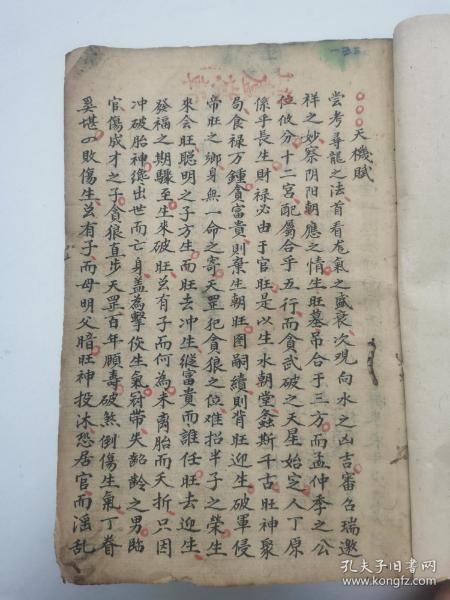 天機賦
嘗考尋龍之法首看龙氣之盛衰次观向水之凶吉審召瑞邀
祥之妙察阴阳朝應之情生旺墓吊合于三方而孟仲季之公
位攸分十二宮配屬合乎五行而貪武破之天星始定人丁原
係乎長生財禄必由于官旺是以生水朝堂螽斯千古旺神聚
局食禄万鍾貪富貴則棄生朝旺图嗣續則背旺迎生破軍侵
帝旺之鄉身無一命之寄天罡犯貪狼之位难招半子之榮生
來会旺聪明之子方生而旺去冲生縱富貴而誰任旺去迎生
發福之期驟至生來破旺岂有子而何為未离胎而夭折只因
冲破胎神纔出世而亡身盖為擊侯生氣冠帶失韶齡之男臨
官傷成才之子貪狼直步天罡百年頋壽破煞倒傷生氣丁眷
奚堪四敗傷生岂有子而母明父暗旺神投沐恐居官而淫乱
孔子旧书网
book.kongfz.com